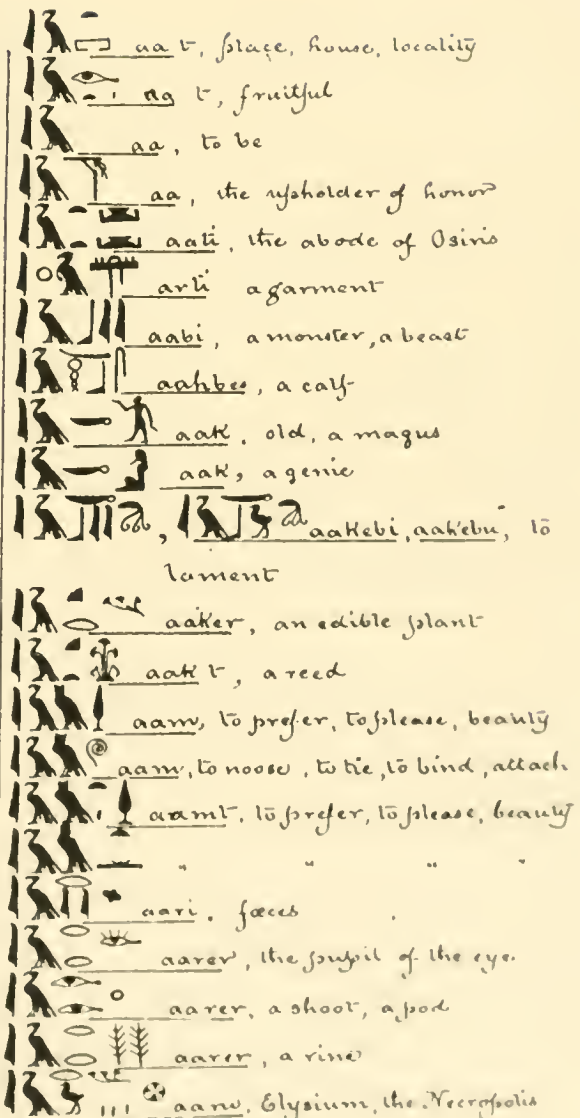 aa t, place, house, locality
aa t, fruitful
aa, to be
aa, the upholder of honor
aati, the abode of Osiris
arti a garment
aabi, a monster, a beast
aahbes, a calf
aak, old, a magus
aak, a genie
, aakebi, aakebu, to
lament
aaker, an edible plant
aak t, a reed
aam, to prefer, to please, beauty
aam, to noose, to tie, to bind, attach
aamt, to prefer, to please, beauty
" " " "
aari. fœces
aarer, the pupil of the eye.
aarer, a shoot, a pod
aarer, a vine
Elysium, the Necropolis